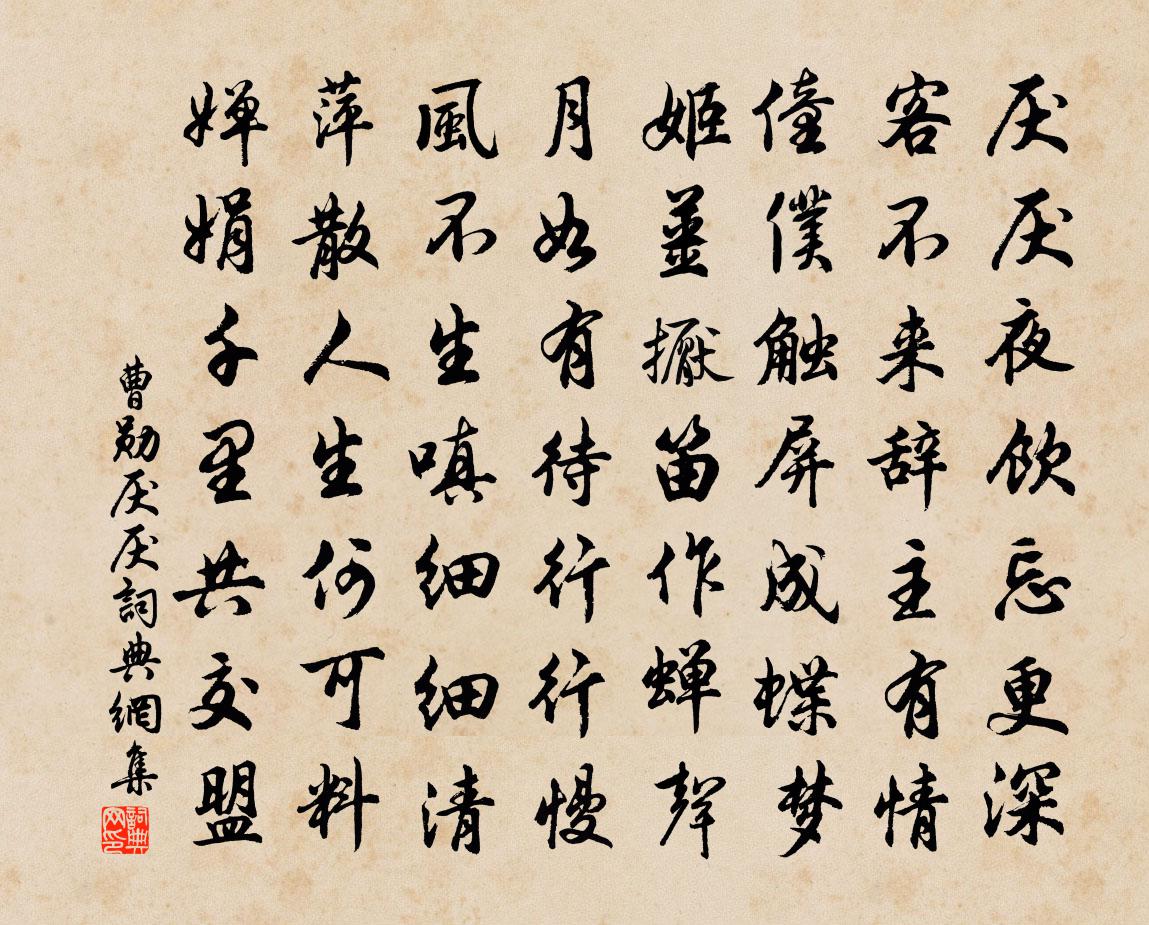 厌厌夜饮忘更深
客不来辞主有情
僮僕触屏成蝶梦
姬姜擫笛作蝉聲
月如有待行行慢
風不生嗔细细清
萍散人生何可料
婵娟千里共交盟
曹勋厌厌詞典網集
詞典网印